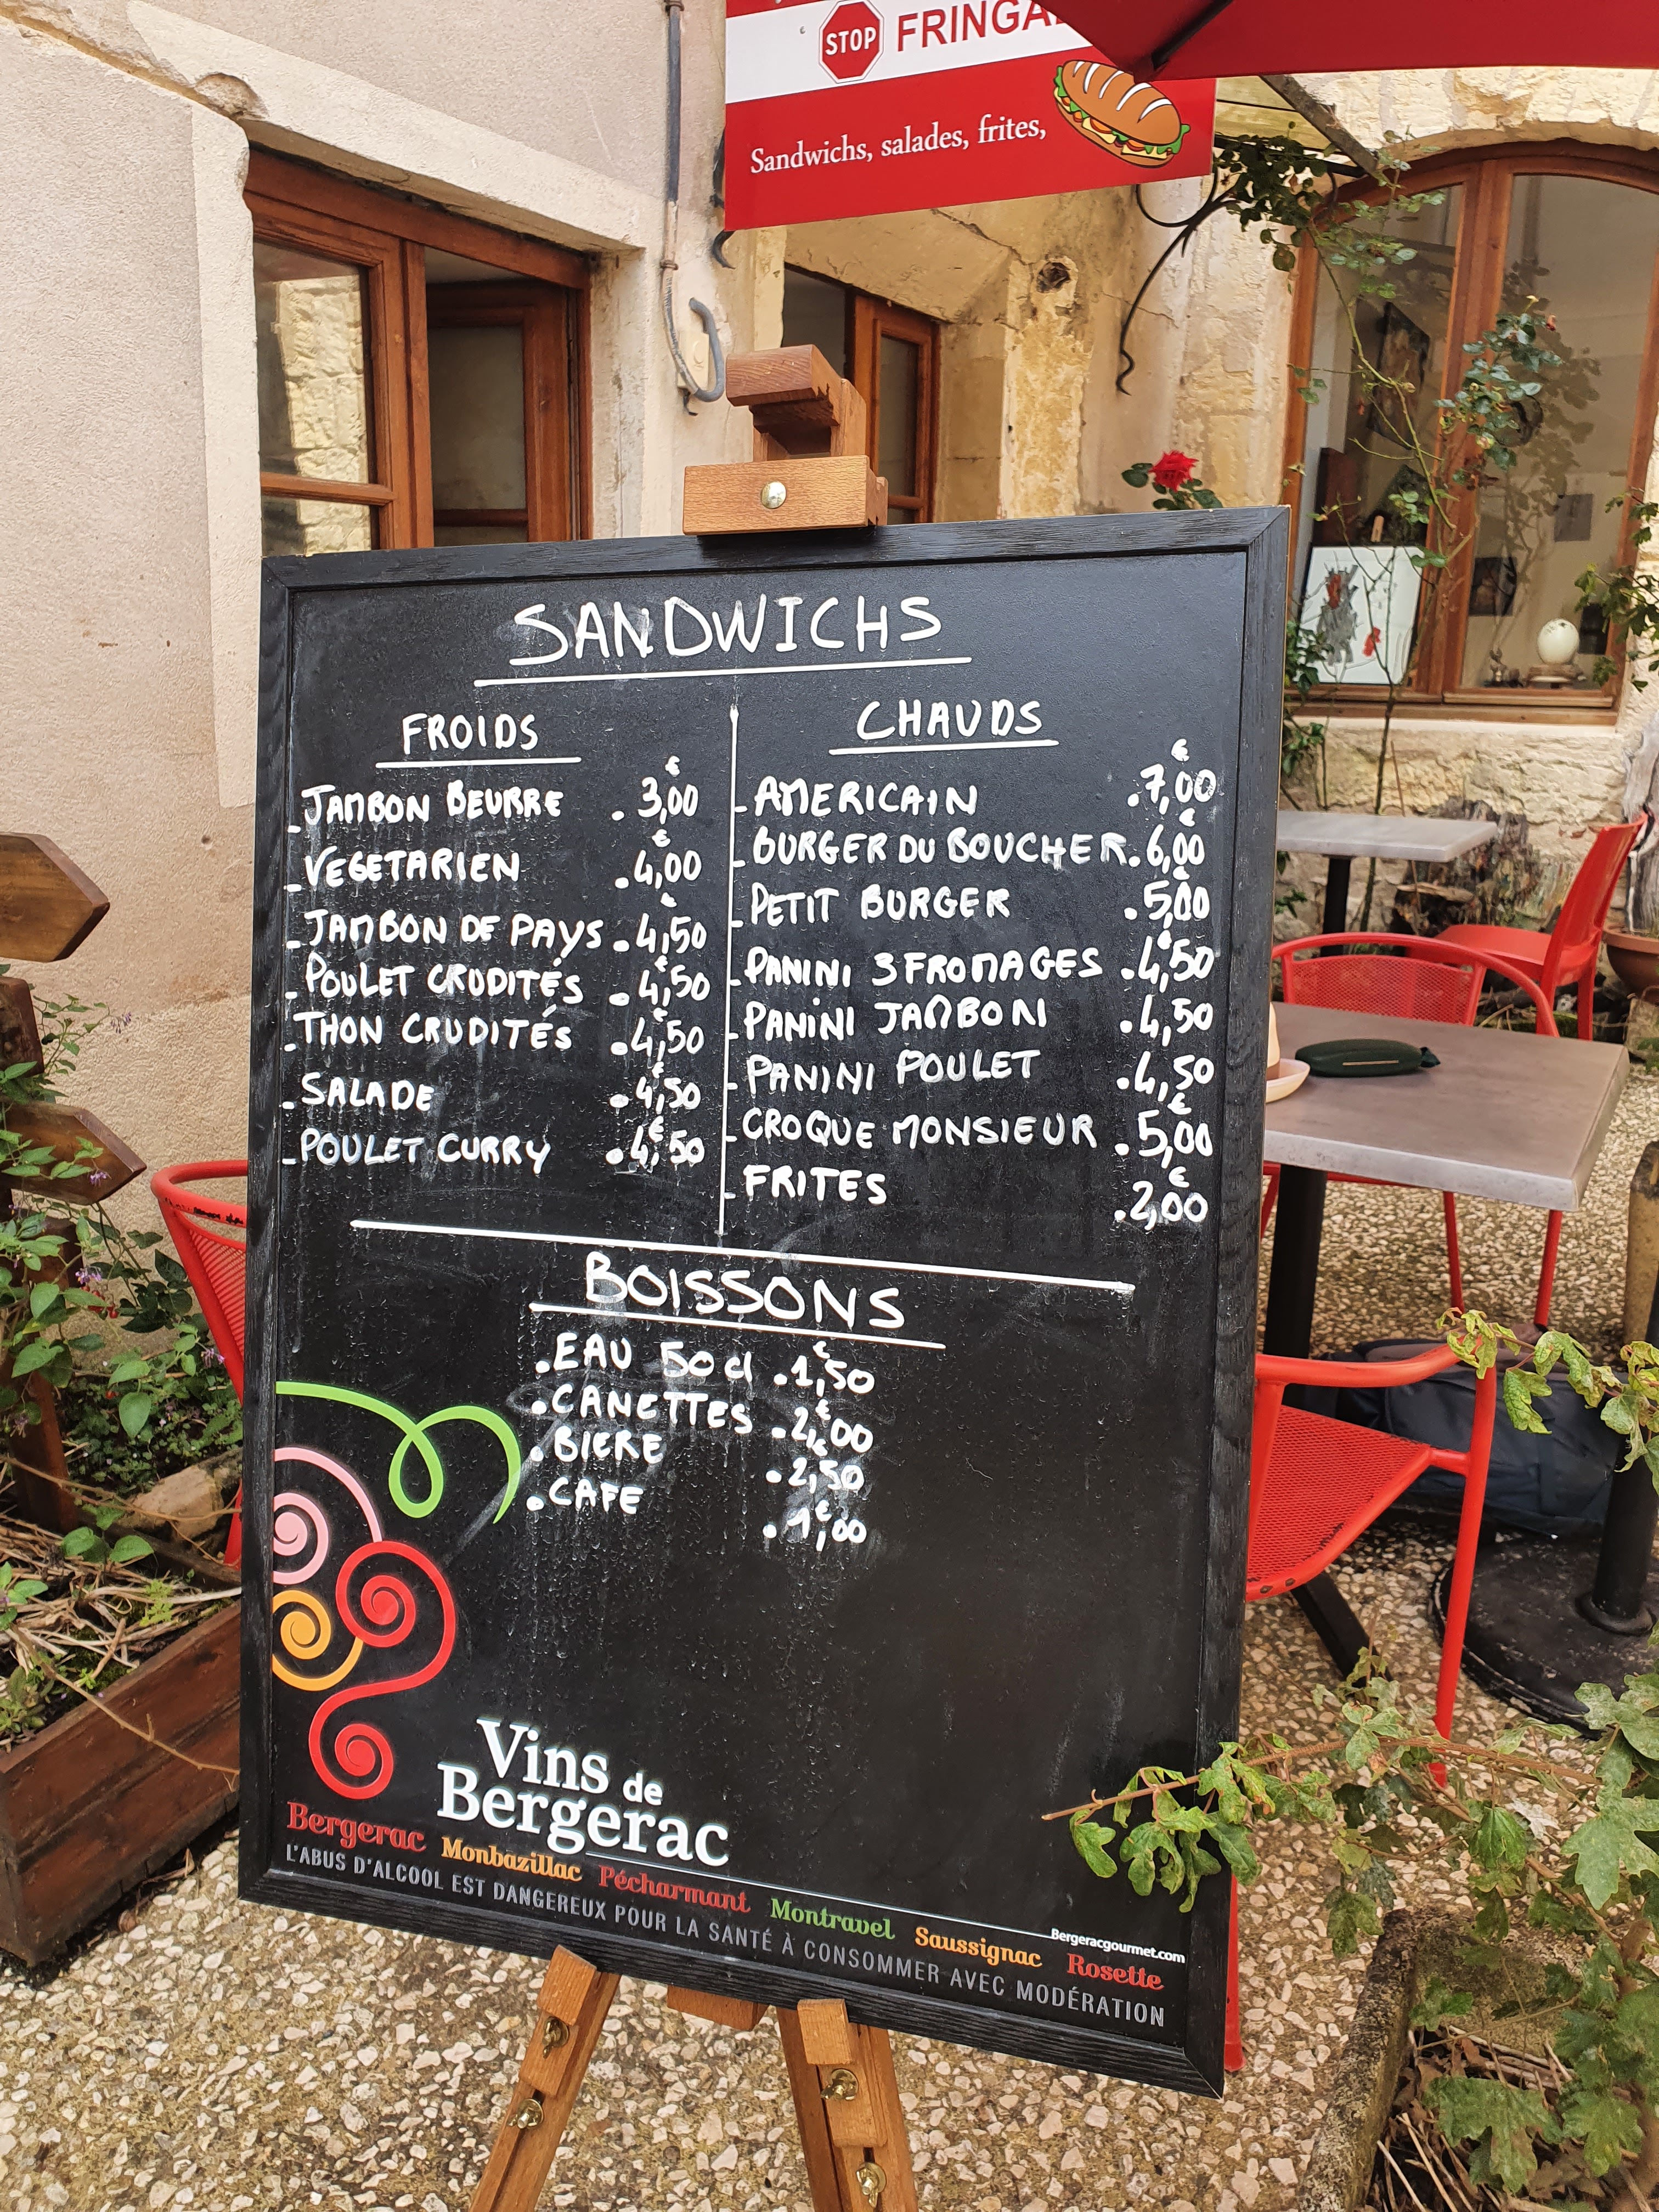 STOP
Sandwichs, salades, frites,
SANDWICHS
FROIDS
- JAMBON BEURRE . 3,00 €
- VEGETARIEN . 4,00 €
- JAMBON DE PAYS . 4,50 €
- POULET CRUDITÉS . 4,50 €
- THON CRUDITÉS . 4,50 €
- SALADE . 4,50 €
- POULET CURRY . 4,50 €
CHAUDS
- AMERICAIN . 7,00 €
- BURGER DU BOUCHER . 6,00 €
- PETIT BURGER . 5,00 €
- PANINI 3 FROMAGES . 4,50 €
- PANINI JAMBON . 4,50
- PANINI POULET . 4,50
- CROQUE MONSIEUR . 5,00 €
- FRITES . 2,00 €
BOISSONS
. EAU 50 cl . 1,50 €
. CANETTES . 2,00 €
. BIERE . 2,50 €
. CAFE . 1,00 €
Vins de
Bergerac
Bergeracgourmet.com
Bergerac Monbazillac Pécharmant Montravel Saussignac Rosette
L'ABUS D'ALCOOL EST DANGEREUX POUR LA SANTÉ À CONSOMMER AVEC MODÉRATION